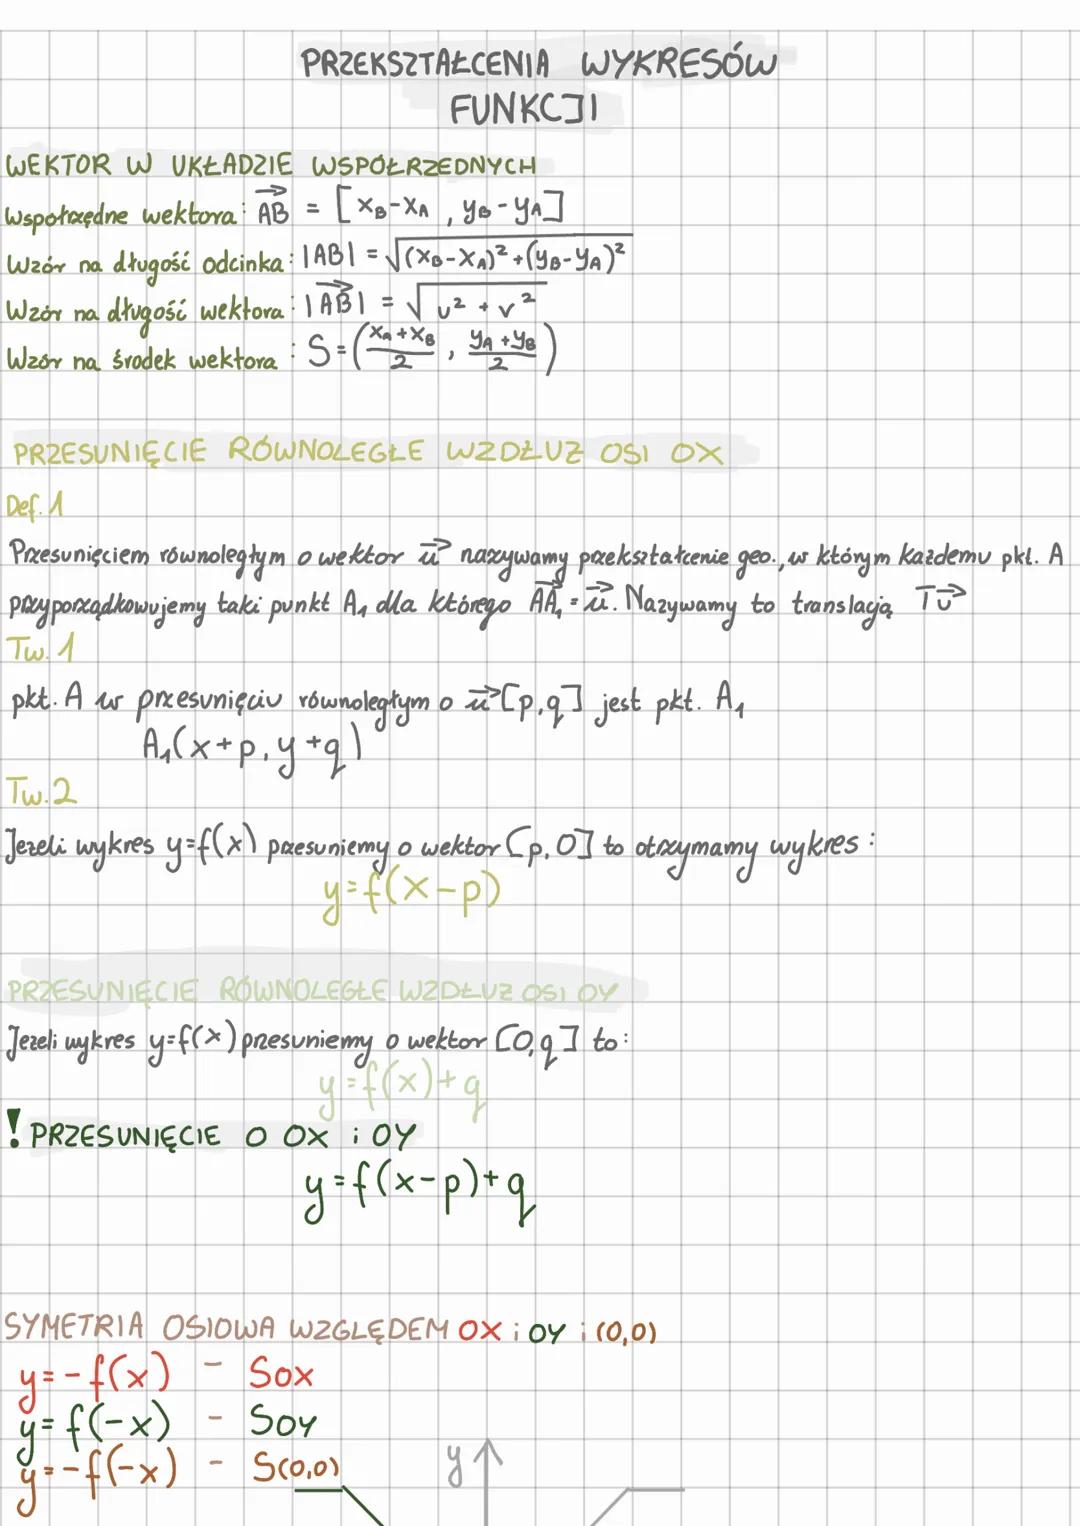 PRZEKSZTAŁCENIA WYKRESÓW
FUNKCJI
WEKTOR W UKŁADZIE WSPÓŁRZEDNYCH
Współrzędne wektora: $\overrightarrow{AB}$ = [x_B-x_A, y_B-y_A]
Wzór na długość odcinka: |AB| = √((x_B-x_A)²+(y_B-y_A)²)
Wzór na długość wektora: |$\overrightarrow{AB}$| = √(u² + v²)
Wzór na środek wektora: S=((x_A+x_B)/2, (y_A+y_B)/2)
PRZESUNIĘCIE RÓWNOLEGŁE WZDŁUŻ OSI OX
Def. 1
Przesunięciem równoległym o wektor $\vec{u}$ nazywamy przekształcenie geo., w którym każdemu pkt. A
przyporządkowujemy taki punkt A₁ dla którego $\overrightarrow{AA_1}$=$\vec{u}$. Nazywamy to translacją T$\vec{u}$
Tw. 1
pkt. A w przesunięciu równoległym o $\vec{u}$[p,q] jest pkt. A₁
A₁(x+p, y+q)
Tw. 2
Jeżeli wykres y=f(x) przesuniemy o wektor [p,0] to otrzymamy wykres:
y=f(x-p)
PRZESUNIĘCIE RÓWNOLEGŁE WZDŁUŻ OSI OY
Jeżeli wykres y=f(x) przesuniemy o wektor [0,q] to:
y=f(x)+q
! PRZESUNIĘCIE O OX i OY
y=f(x-p)+q
SYMETRIA OSIOWA WZGLĘDEM OX i OY i (0,0)
y=-f(x) - Sox
y=f(-x) - Soy
y=-f(-x) - S(0,0)
y